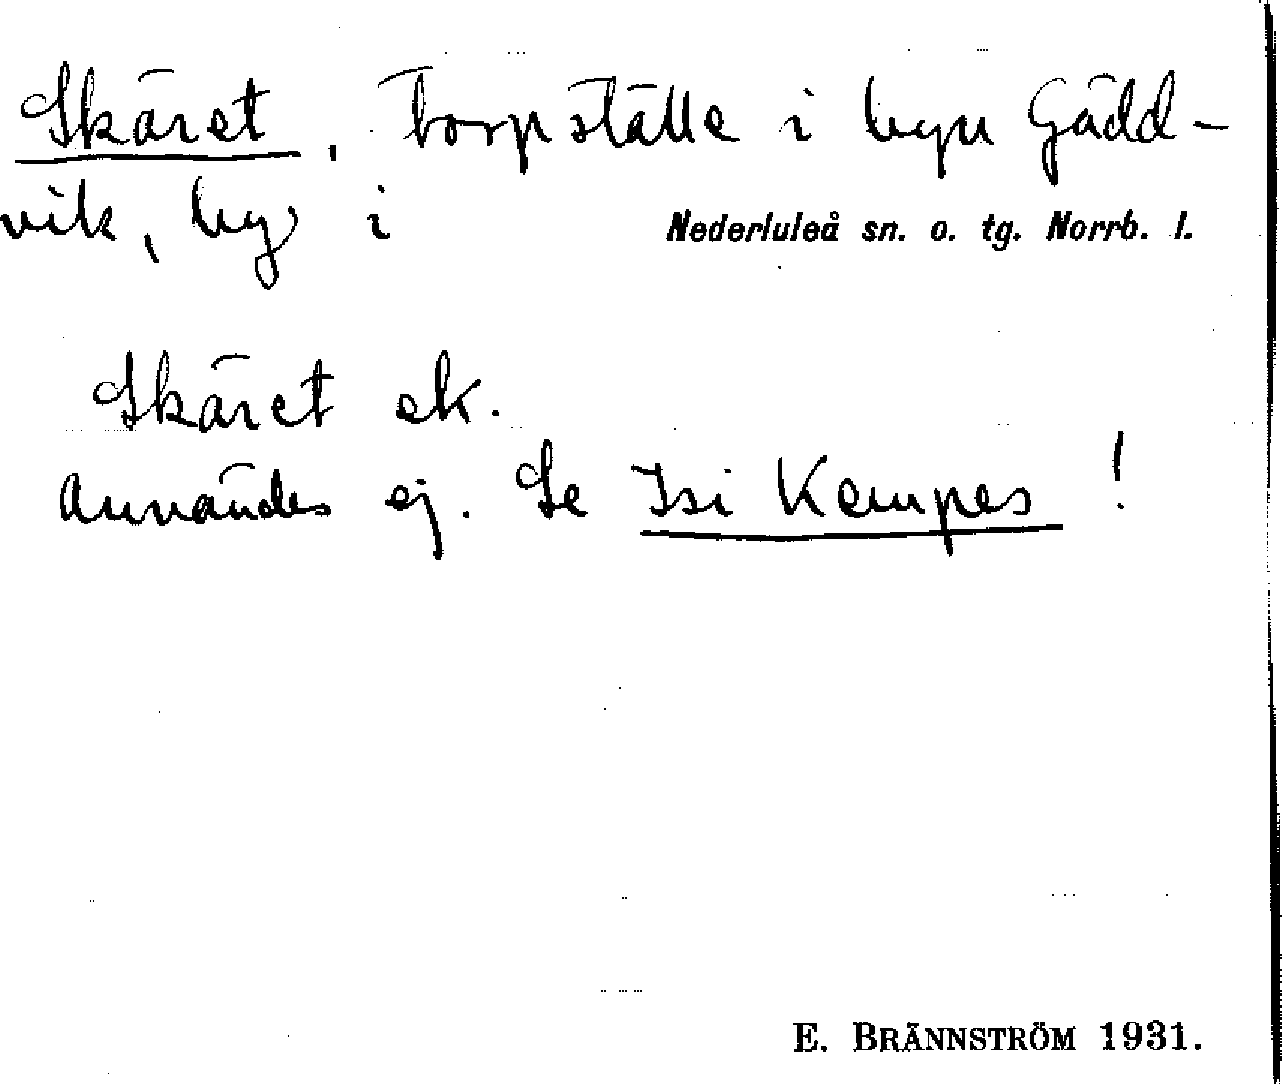 Skäret, torpställe i byn Gädd-
vik, by i Nederluleå sn. o. tg. Norrb. l.
Skäret ek.
Användes ej. Se Isi Kempes!
E. BRÄNNSTRÖM 1931.